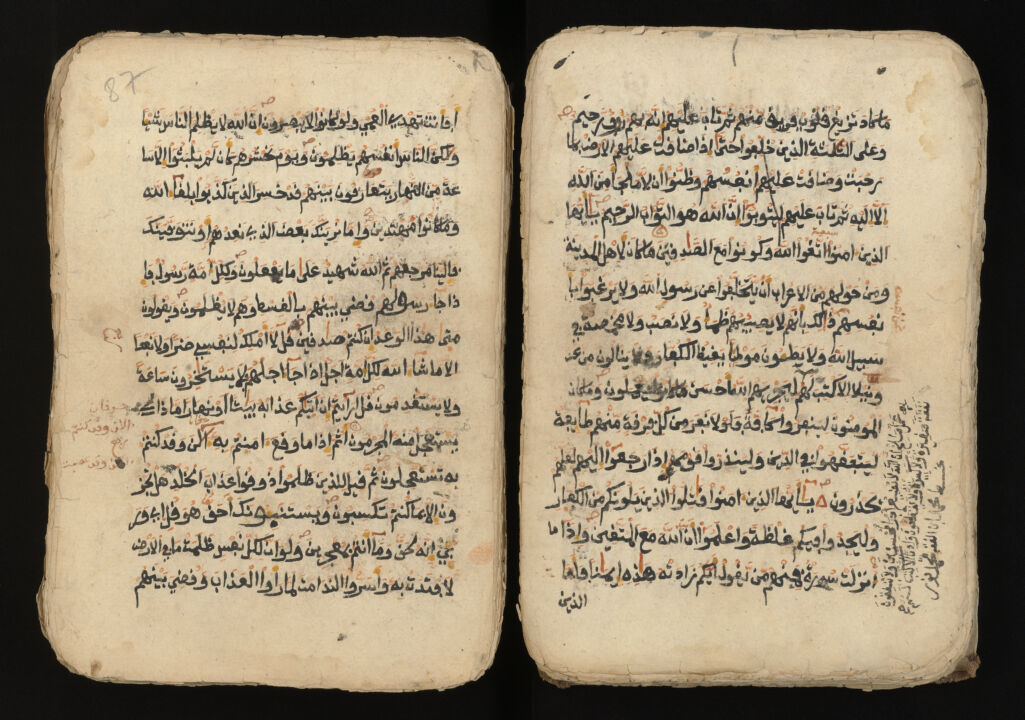 ما كاد تزيغ قلوب فريق منهم ثم تاب عليهم انه بهم رءوف رحيم
وعلى الثلثة الذين خلفوا حتى اذا ضاقت عليهم الارض بما
رحبت وضاقت عليهم انفسهم وظنوا ان لا ملجا من الله
الا اليه ثم تاب عليهم ليتوبوا ان الله هو التواب الرحيم يايها
الذين امنوا اتقوا الله وكونوا مع الصدقين ما كان لاهل المدينة
ومن حولهم من الاعراب ان يتخلفوا عن رسول الله ولا يرغبوا با
نفسهم ذلك بانهم لا يصيبهم ظما ولا نصب ولا مخمصة في
سبيل الله ولا يطئون موطئا يغيظ الكفار ولا ينالون من عد
ونيلا الا كتب لهم ليجزيهم الله احسن ما كانوا يعملون وما كان
المومنون لينفروا كافة فلولا نفر من كل فرقة منهم طايفة
ليتفقهوا في الدين ولينذروا قومهم اذا رجعوا اليهم لعلهم
يحذرون يايها الذين امنوا قتلوا الذين يلونكم من الكفار
وليجدوا فيكم غلظة واعلموا ان الله مع المتقين واذا ما
انزلت سورة فمنهم من يقول ايكم زادته هذه ايمنا فاما
الذين
به عمل صلح ان الله لا يضيع اجر المحسنين ولا ينفقون
نفقة صغيرة ولا كبيرة ولا يقطعون واديا الا كتب لهم
87
افانت تهدي العمي ولو كانوا لا يبصرون ان الله لا يظلم الناس شيا
ولكن الناس انفسهم يظلمون ويوم نحشرهم كان لم يلبثوا الا سا
عة من النهار يتعارفون بينهم قد خسر الذين كذبوا بلقاء الله
وما كانوا مهتدين واما نرينك بعض الذي نعدهم او نتوفينك
فالينا مرجعهم ثم الله شهيد على ما يفعلون ولكل امة رسول فا
ذا جا رسولهم قضي بينهم بالقسط وهم لا يظلمون ويقولون
متى هذا الوعد ان كنتم صدقين قل لا املك لنفسي ضرا ولا نفعا
الا ما شا الله لكل امة اجل اذا جا اجلهم لا يستخرون ساعة
ولا يستقدمون قل ارايتم ان اتيكم عذابه بيتا او نهارا ماذا
يستعجل منه المجرمون اثم اذا ما وقع امنتم به الن وقد كنتم
به تستعجلون ثم قيل للذين ظلموا ذوقوا عذاب الخلد هل تجز
ون الا بما كنتم تكسبون ويستنبونك احق هو قل اي ور
بي انه لحق وما انتم بمعجزين ولو ان لكل نفس ظلمت ما في الارض
لافتدت به واسروا الندامة لما راوا العذاب وقضي بينهم